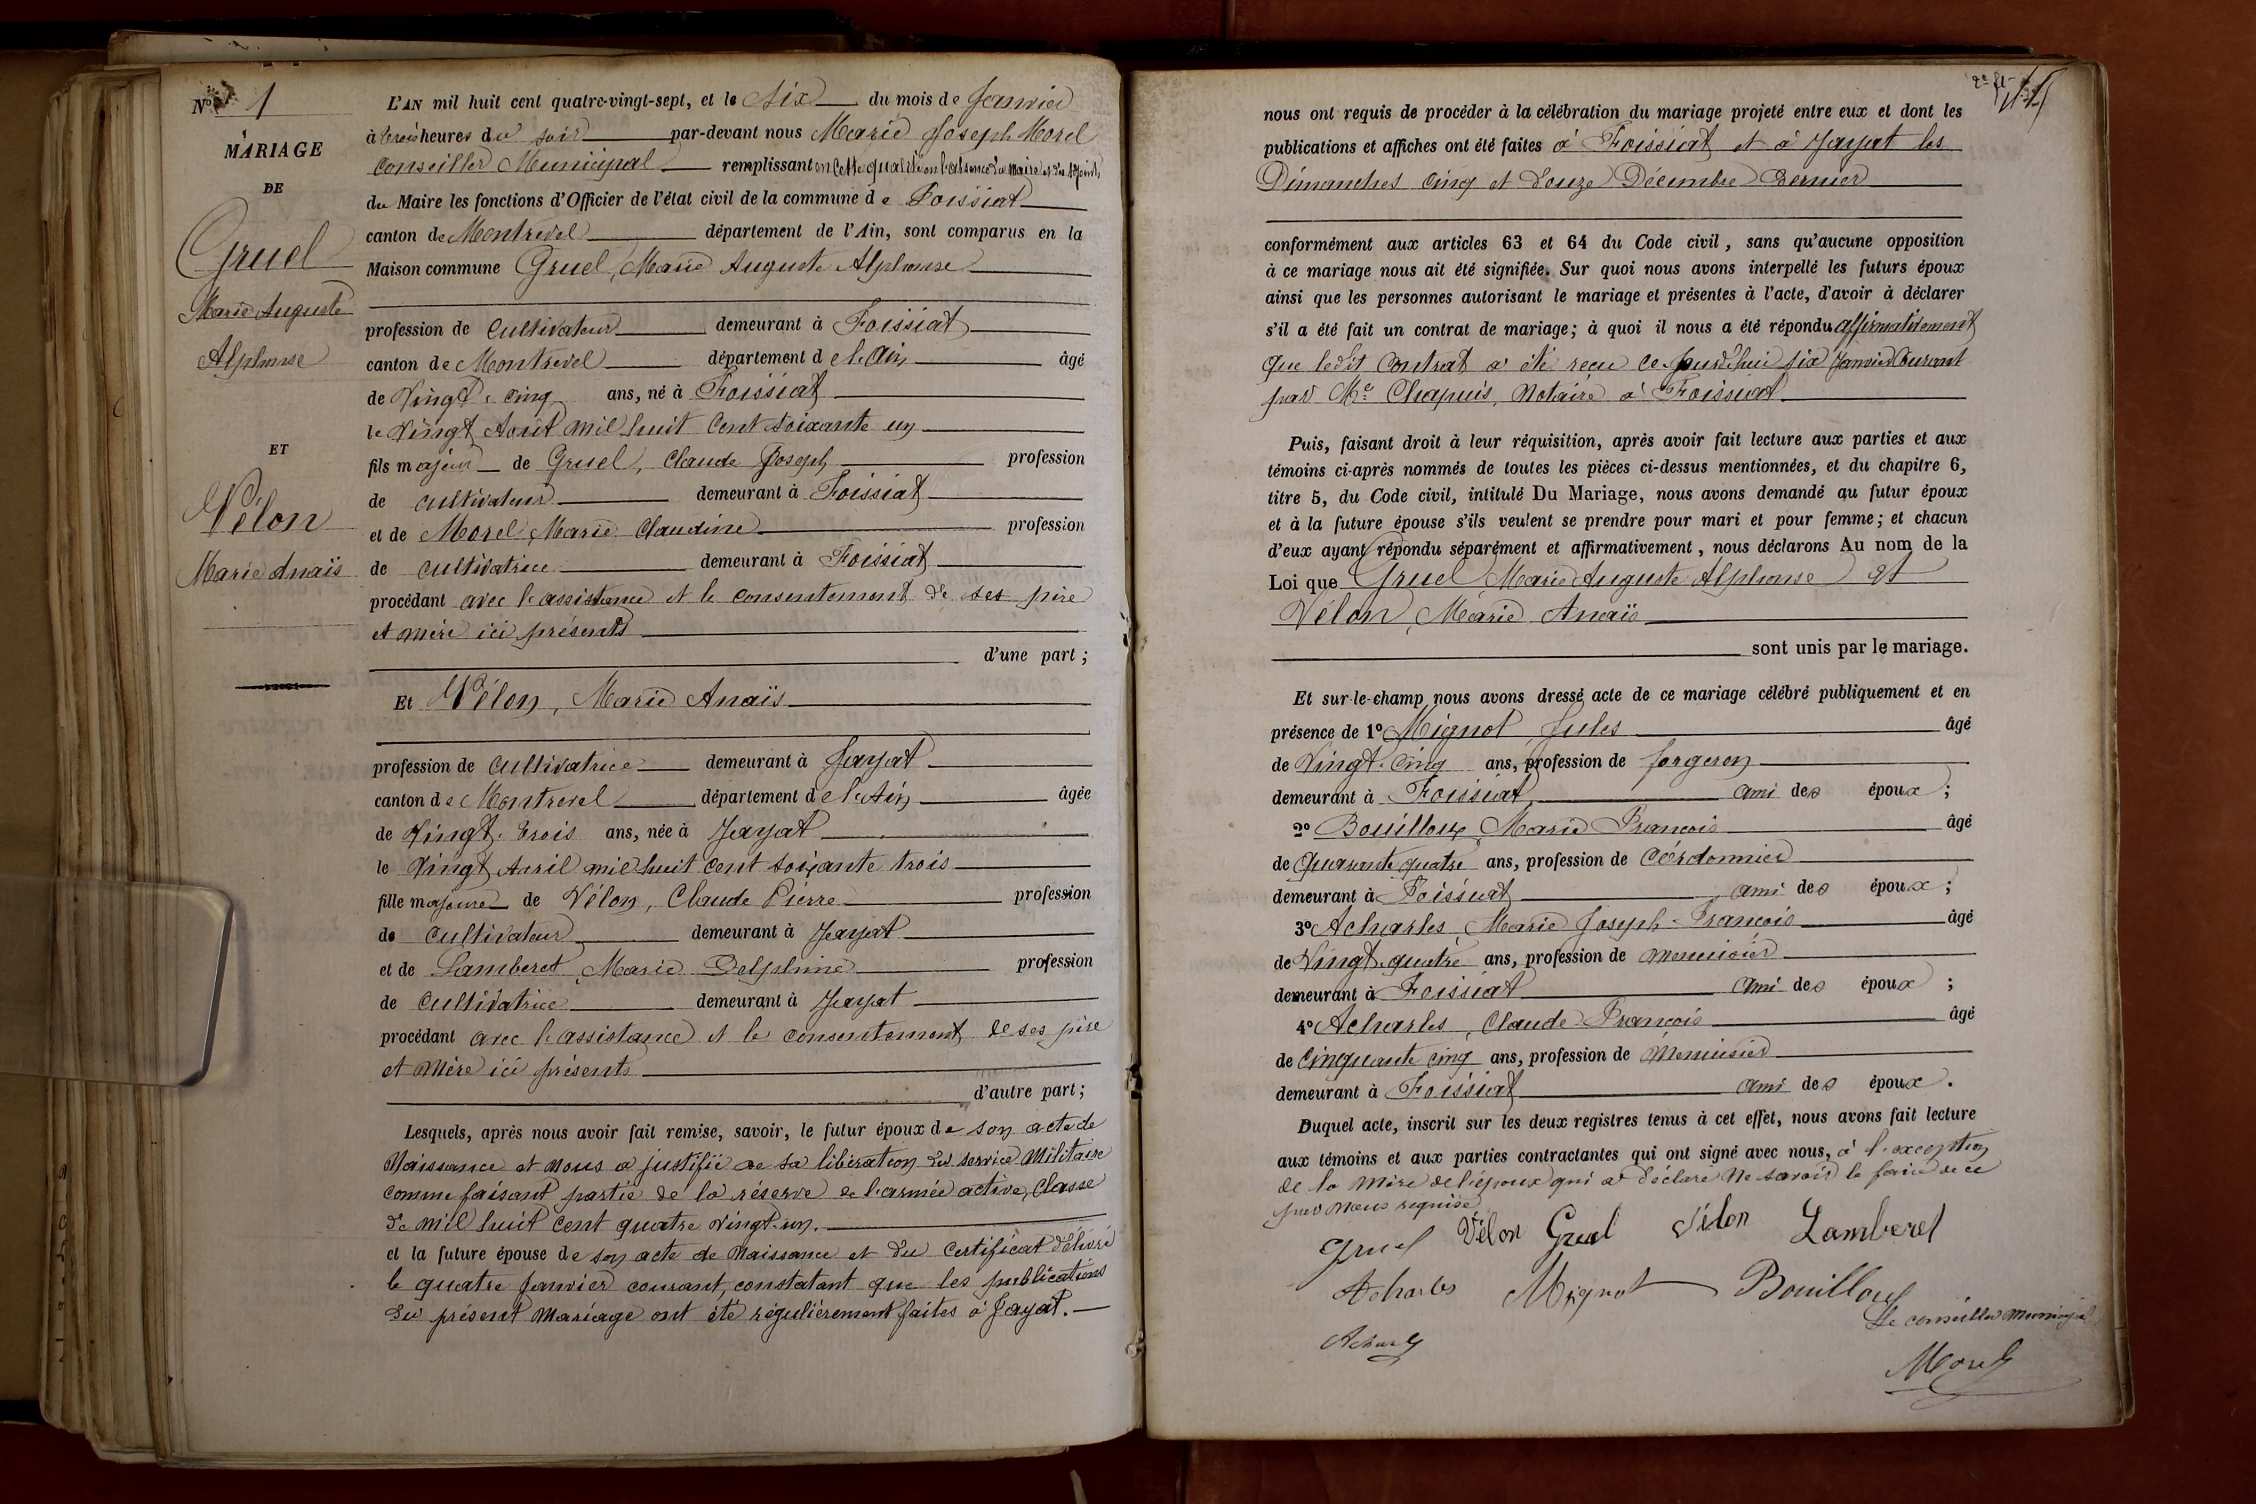 N° 1
MARIAGE
DE
Gruel
Marie Auguste
Alphonse
ET
Vélon
Marie Anaïs
L'AN mil huit cent quatre-vingt-sept, et le Six du mois de Janvier
à trois heures du soir par-devant nous Marie Joseph Morel
Conseiller Municipal remplissant en cette qualité en l'absence du Maire et de l'adjoint
du Maire les fonctions d'Officier de l'état civil de la commune de Foissiat
canton de Montrevel département de l'Ain, sont comparus en la
Maison commune Gruel, Marie Auguste Alphonse
profession de Cultivateur demeurant à Foissiat
canton de Montrevel département de l'Ain âgé
de Vingt-cinq ans, né à Foissiat
le Vingt Août mil huit cent soixante un
fils majeur de Gruel, Claude Joseph profession
de cultivateur demeurant à Foissiat
et de Morel, Marie Claudine profession
de cultivatrice demeurant à Foissiat
procédant avec l'assistance et le consentement de ses père
et mère ici présents
d'une part ;
Et Vélon, Marie Anaïs
profession de Cultivatrice demeurant à Jayat
canton de Montrevel département de l'Ain âgée
de Vingt-trois ans, née à Jayat
le Vingt Avril mil huit cent soixante trois
fille majeure de Vélon, Claude Pierre profession
de cultivateur demeurant à Jayat
et de Lamberet, Marie Delphine profession
de cultivatrice demeurant à Jayat
procédant avec l'assistance et le consentement de ses père
et mère ici présents
d'autre part ;
Lesquels, après nous avoir fait remise, savoir, le futur époux de son acte de
Naissance et nous a justifié de sa libération du service Militaire
comme faisant partie de la réserve de l'armée active, Classe
de mil huit cent quatre vingt-un.
et la future épouse de son acte de Naissance et du certificat délivré
le quatre Janvier courant, constatant que les publications
du présent Mariage ont été régulièrement faites à Jayat.
nous ont requis de procéder à la célébration du mariage projeté entre eux et dont les
publications et affiches ont été faites à Foissiat et à Jayat les
Dimanches cinq et douze Décembre dernier
conformément aux articles 63 et 64 du Code civil, sans qu'aucune opposition
à ce mariage nous ait été signifiée. Sur quoi nous avons interpellé les futurs époux
ainsi que les personnes autorisant le mariage et présentes à l'acte, d'avoir à déclarer
s'il a été fait un contrat de mariage ; à quoi il nous a été répondu affirmativement
que ledit Contrat a été reçu ce jourd'hui six Janvier Courant
par Me Chapuis, Notaire à Foissiat
Puis, faisant droit à leur réquisition, après avoir fait lecture aux parties et aux
témoins ci-après nommés de toutes les pièces ci-dessus mentionnées, et du chapitre 6,
titre 5, du Code civil, intitulé Du Mariage, nous avons demandé au futur époux
et à la future épouse s'ils veulent se prendre pour mari et pour femme ; et chacun
d'eux ayant répondu séparément et affirmativement, nous déclarons Au nom de la
Loi que Gruel Marie Auguste Alphonse et
Vélon, Marie Anaïs
sont unis par le mariage.
Et sur-le-champ nous avons dressé acte de ce mariage célébré publiquement et en
présence de 1° Mignot Jules âgé
de Vingt-cinq ans, profession de forgeron
demeurant à Foissiat ami des époux ;
2° Bouilloux, Marie François âgé
de Quarante quatre ans, profession de Cordonnier
demeurant à Foissiat ami des époux ;
3° Acharles, Marie Joseph-François âgé
de Vingt-quatre ans, profession de menuisier
demeurant à Foissiat ami des époux ;
4° Acharles, Claude-François âgé
de Cinquante cinq ans, profession de Menuisier
demeurant à Foissiat ami des époux.
Duquel acte, inscrit sur les deux registres tenus à cet effet, nous avons fait lecture
aux témoins et aux parties contractantes qui ont signé avec nous, à l'exception
de la mère de l'époux qui a déclaré Ne savoir le faire de ce
par nous requise
Gruel Vélon Gruel Vélon Lamberet
Acharles Mignot Bouilloux
Le conseiller municipal
Morel